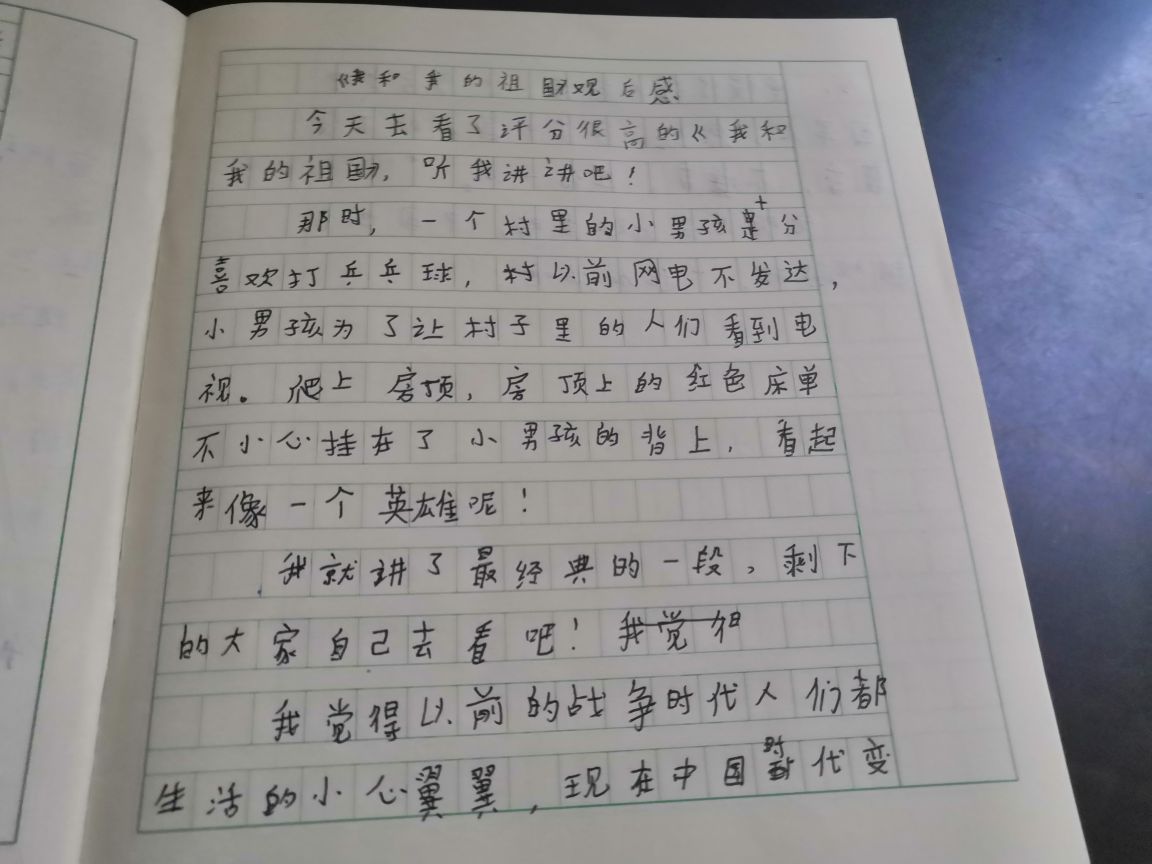 《我和我的祖国》观后感
今天去看了评分很高的《我和
我的祖国》,听我讲讲吧!
那时,一个村里的小男孩十分
喜欢打乒乓球,村以前网电不发达,
小男孩为了让村子里的人们看到电
视。爬上房顶,房顶上的红色床单
不小心挂在了小男孩的背上,看起
来像一个英雄呢!
我就讲了最经典的一段,剩下
的大家自己去看吧!我觉
我觉得以前的战争时代人们都
生活的小心翼翼,现在中国时代变